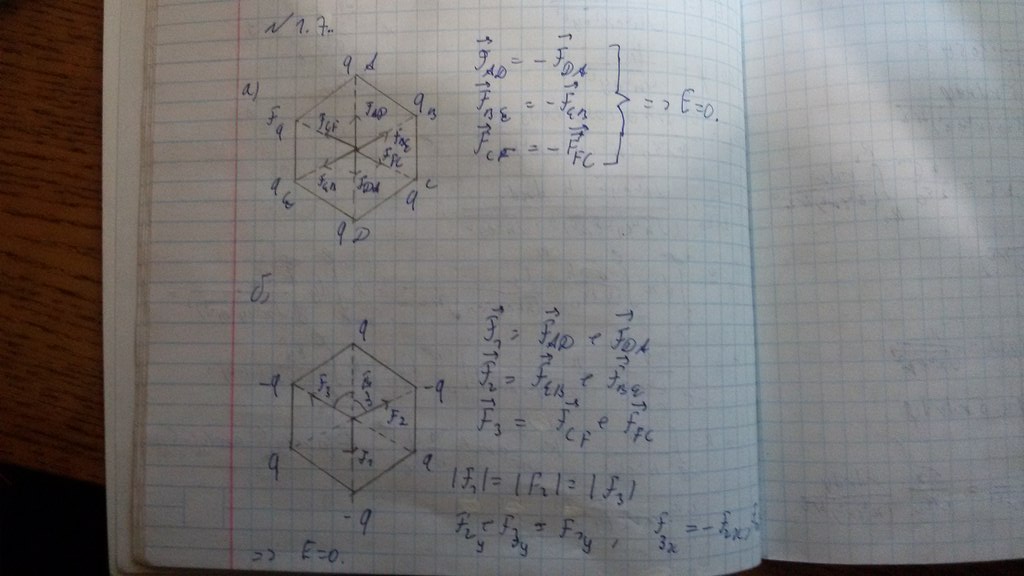 № 1.7.
а)
q A
q B
F q
q E
C q
q D
F_AD
F_BE
F_FC
F_DA
F⃗_AD = - F⃗_DA
F⃗_BE = - F⃗_EB => E=0.
F⃗_CF = - F⃗_FC
б)
q
-q
-q
q
q
-q
F_3
F_2
F_1
F⃗_1 = F⃗_AD + F⃗_DA
F⃗_2 = F⃗_EB + F⃗_BE
F⃗_3 = F⃗_CF + F⃗_FC
|F_1| = |F_2| = |F_3|
F_2y + F_3y = F_1y , F_3x = - F_2x
=> E=0.